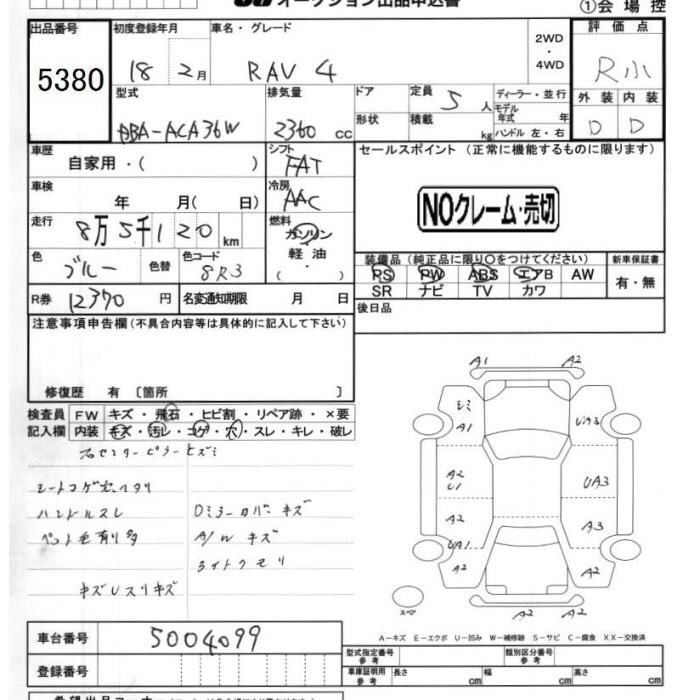 オークション出品申込書
①会場控
出品番号 初度登録年月 車名・グレード 評価点
5380 18 2月 RAV 4 2WD・4WD R小
型式 排気量 ドア 定員 5人 ディーラー・並行 外装 内装
DBA-ACA36W 2360 cc 形状 積載 kg モデル年式 年 ハンドル 左・右 D D
車歴 シフト セールスポイント (正常に機能するものに限ります)
自家用・( ) FAT
車検 冷房
年 月( 日) AAC NOクレーム・売切
走行 燃料
8万5千120km ガソリン
色 色コード 軽油
ブルー 色替 8R3 ・( ) 装備品 (純正品に限り〇をつけてください) 新車保証書
PS PW ABS エアB AW 有・無
SR ナビ TV カワ
R券 12370 円 名変通知期限 月 日 後日品
注意事項申告欄(不具合内容等は具体的に記入して下さい)
修復歴 有 〔箇所 〕
検査員 FW キズ・飛石・ヒビ割・リペア跡・×要
記入欄 内装 キズ・汚レ・コゲ・穴・スレ・キレ・破レ
右センターピラーヒズミ
シートコゲ穴ヘタリ
ハンドルスレ Dミラーカバーキズ
ペット毛有り多 A/W キズ
ライトクモリ
キズUスリキズ
A1 A2
シミ A1 UA3
A2 U1 UA3
A2 A3
UA1
A2 A2
スペア A2 A2
A－キズ E－エクボ U－凹み W－補修跡 S－サビ C－腐食 XX－交換済
車台番号 5004099
型式指定番号 参考 類別区分番号 参考
登録番号 車庫証明用 参考 長さ cm 幅 cm 高さ cm